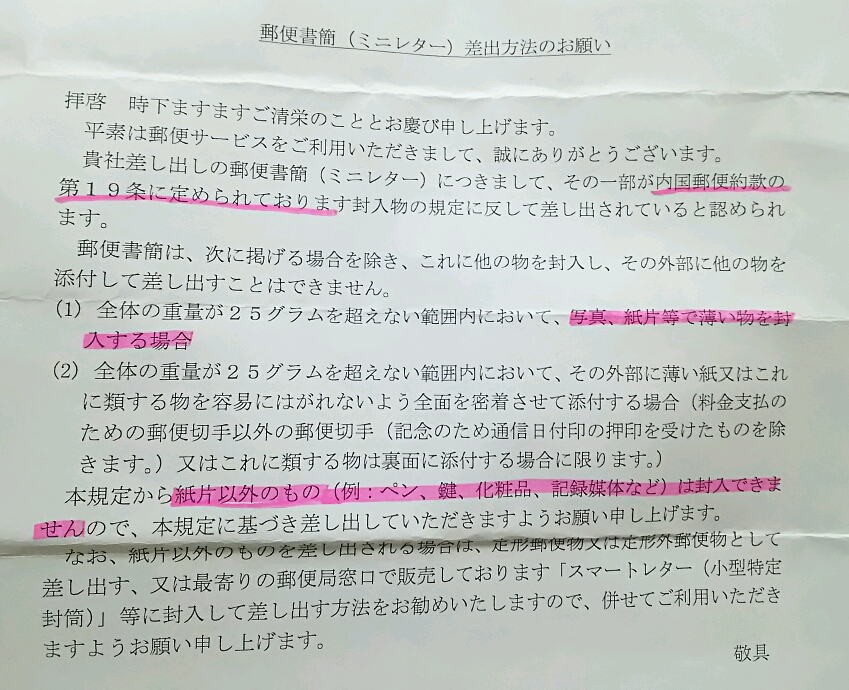 郵便書簡（ミニレター）差出方法のお願い
拝啓　時下ますますご清栄のこととお慶び申し上げます。
平素は郵便サービスをご利用いただきまして、誠にありがとうございます。
貴社差し出しの郵便書簡（ミニレター）につきまして、その一部が内国郵便約款の
第１９条に定められております封入物の規定に反して差し出されていると認められ
ます。
郵便書簡は、次に掲げる場合を除き、これに他の物を封入し、その外部に他の物を
添付して差し出すことはできません。
(1) 全体の重量が２５グラムを超えない範囲内において、写真、紙片等で薄い物を封
入する場合
(2) 全体の重量が２５グラムを超えない範囲内において、その外部に薄い紙又はこれ
に類する物を容易にはがれないよう全面を密着させて添付する場合（料金支払の
ための郵便切手以外の郵便切手（記念のため通信日付印の押印を受けたものを除
きます。）又はこれに類する物は裏面に添付する場合に限ります。）
本規定から紙片以外のもの（例：ペン、鍵、化粧品、記録媒体など）は封入できま
せんので、本規定に基づき差し出していただきますようお願い申し上げます。
なお、紙片以外のものを差し出される場合は、定形郵便物又は定形外郵便物として
差し出す、又は最寄りの郵便局窓口で販売しております「スマートレター（小型特定
封筒）」等に封入して差し出す方法をお勧めいたしますので、併せてご利用いただき
ますようお願い申し上げます。
敬具